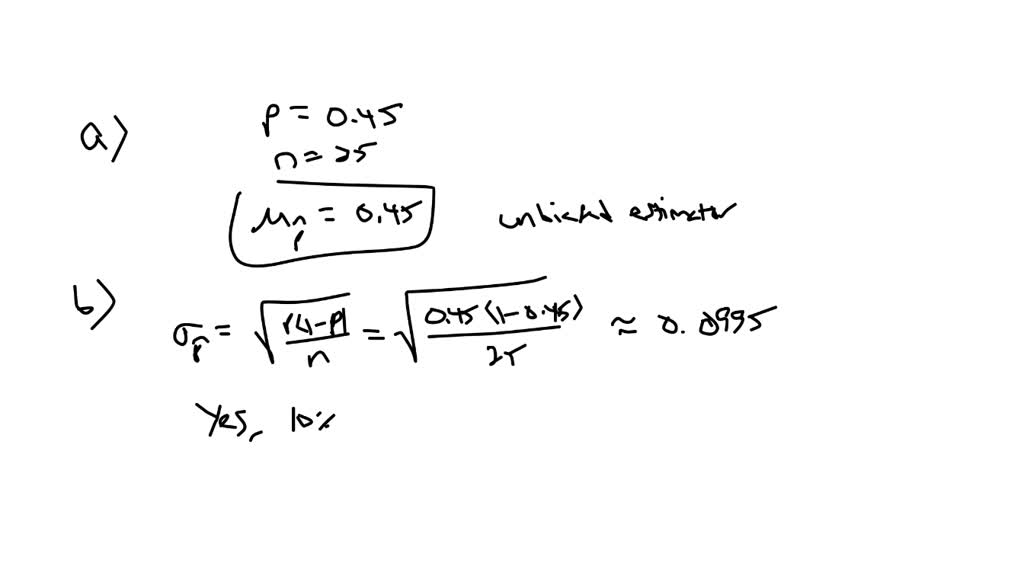 a)
p = 0.45
n = 25
μp̂ = 0.45 unbiased estimator
b)
σp̂ = √(p(1-p)/n) = √(0.45(1-0.45)/25) ≈ 0.0995
Yes, 10%